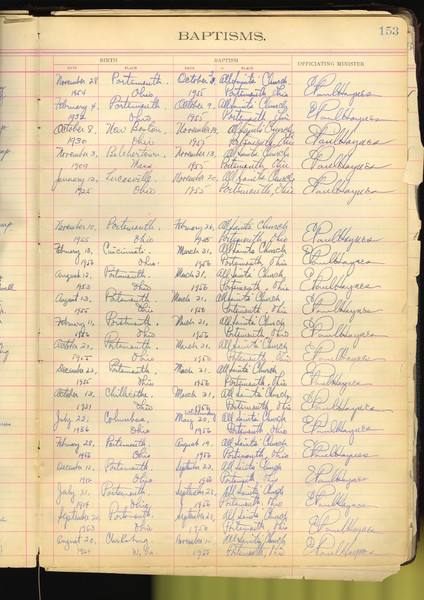 BAPTISMS.
153
BIRTH
BAPTISM
OFFICIATING MINISTER
DATE PLACE DATE PLACE
November 28 Portsmouth October All Saints' Church E Paul Haynes
1954 Ohio 1955 Portsmouth, Ohio
February 4, Portsmouth October 9, All Saints' Church E Paul Haynes
Ohio 1955 Portsmouth, Ohio
October 8, New Boston, November 13, All Saints' Church E Paul Haynes
1930 Ohio 1955 Portsmouth, Ohio
November 3, Belchertown, November 13, All Saints' Church E Paul Haynes
1909 Mass 1955 Portsmouth, Ohio
January 12, Lucasville, November 20, All Saints' Church E Paul Haynes
1925 Ohio 1955 Portsmouth, Ohio
November 10, Portsmouth, February 26, All Saints' Church E Paul Haynes
1955 Ohio Portsmouth, Ohio
February 13, Cincinnati March 21, All Saints' Church E Paul Haynes
Ohio 1956 Portsmouth, Ohio
August 12, Portsmouth March 21, All Saints' Church E Paul Haynes
1953 Ohio 1956 Portsmouth, Ohio
August 13, Portsmouth March 21, All Saints' Church E Paul Haynes
1955 Ohio 1956 Portsmouth, Ohio
February 11, Portsmouth, March 21, All Saints' Church E Paul Haynes
Ohio 1956 Portsmouth, Ohio
October 21, Portsmouth, March 21, All Saints' Church E Paul Haynes
1955 Ohio 1956 Portsmouth, Ohio
December 22, Portsmouth, March 21, All Saints' Church E Paul Haynes
1955 Ohio 1956 Portsmouth, Ohio
October 12, Chillicothe, March 21, All Saints' Church E Paul Haynes
1921 Ohio 1956 Portsmouth, Ohio
July 22, Columbus, May 20, All Saints' Church E Paul Haynes
Ohio 1956 Portsmouth, Ohio
February 28, Portsmouth August 19, All Saints' Church E Paul Haynes
Ohio 1956 Portsmouth, Ohio
December 11, Portsmouth September 23, All Saints' Church E Paul Haynes
Ohio 1956 Portsmouth, Ohio
July 21, Portsmouth, September 23, All Saints' Church E Paul Haynes
Ohio Portsmouth, Ohio
September 20, Portsmouth September 23, All Saints' Church E Paul Haynes
1953 Ohio 1956 Portsmouth, Ohio
August 20, November All Saints' Church E Paul Haynes
W. Va. 1956 Portsmouth, Ohio